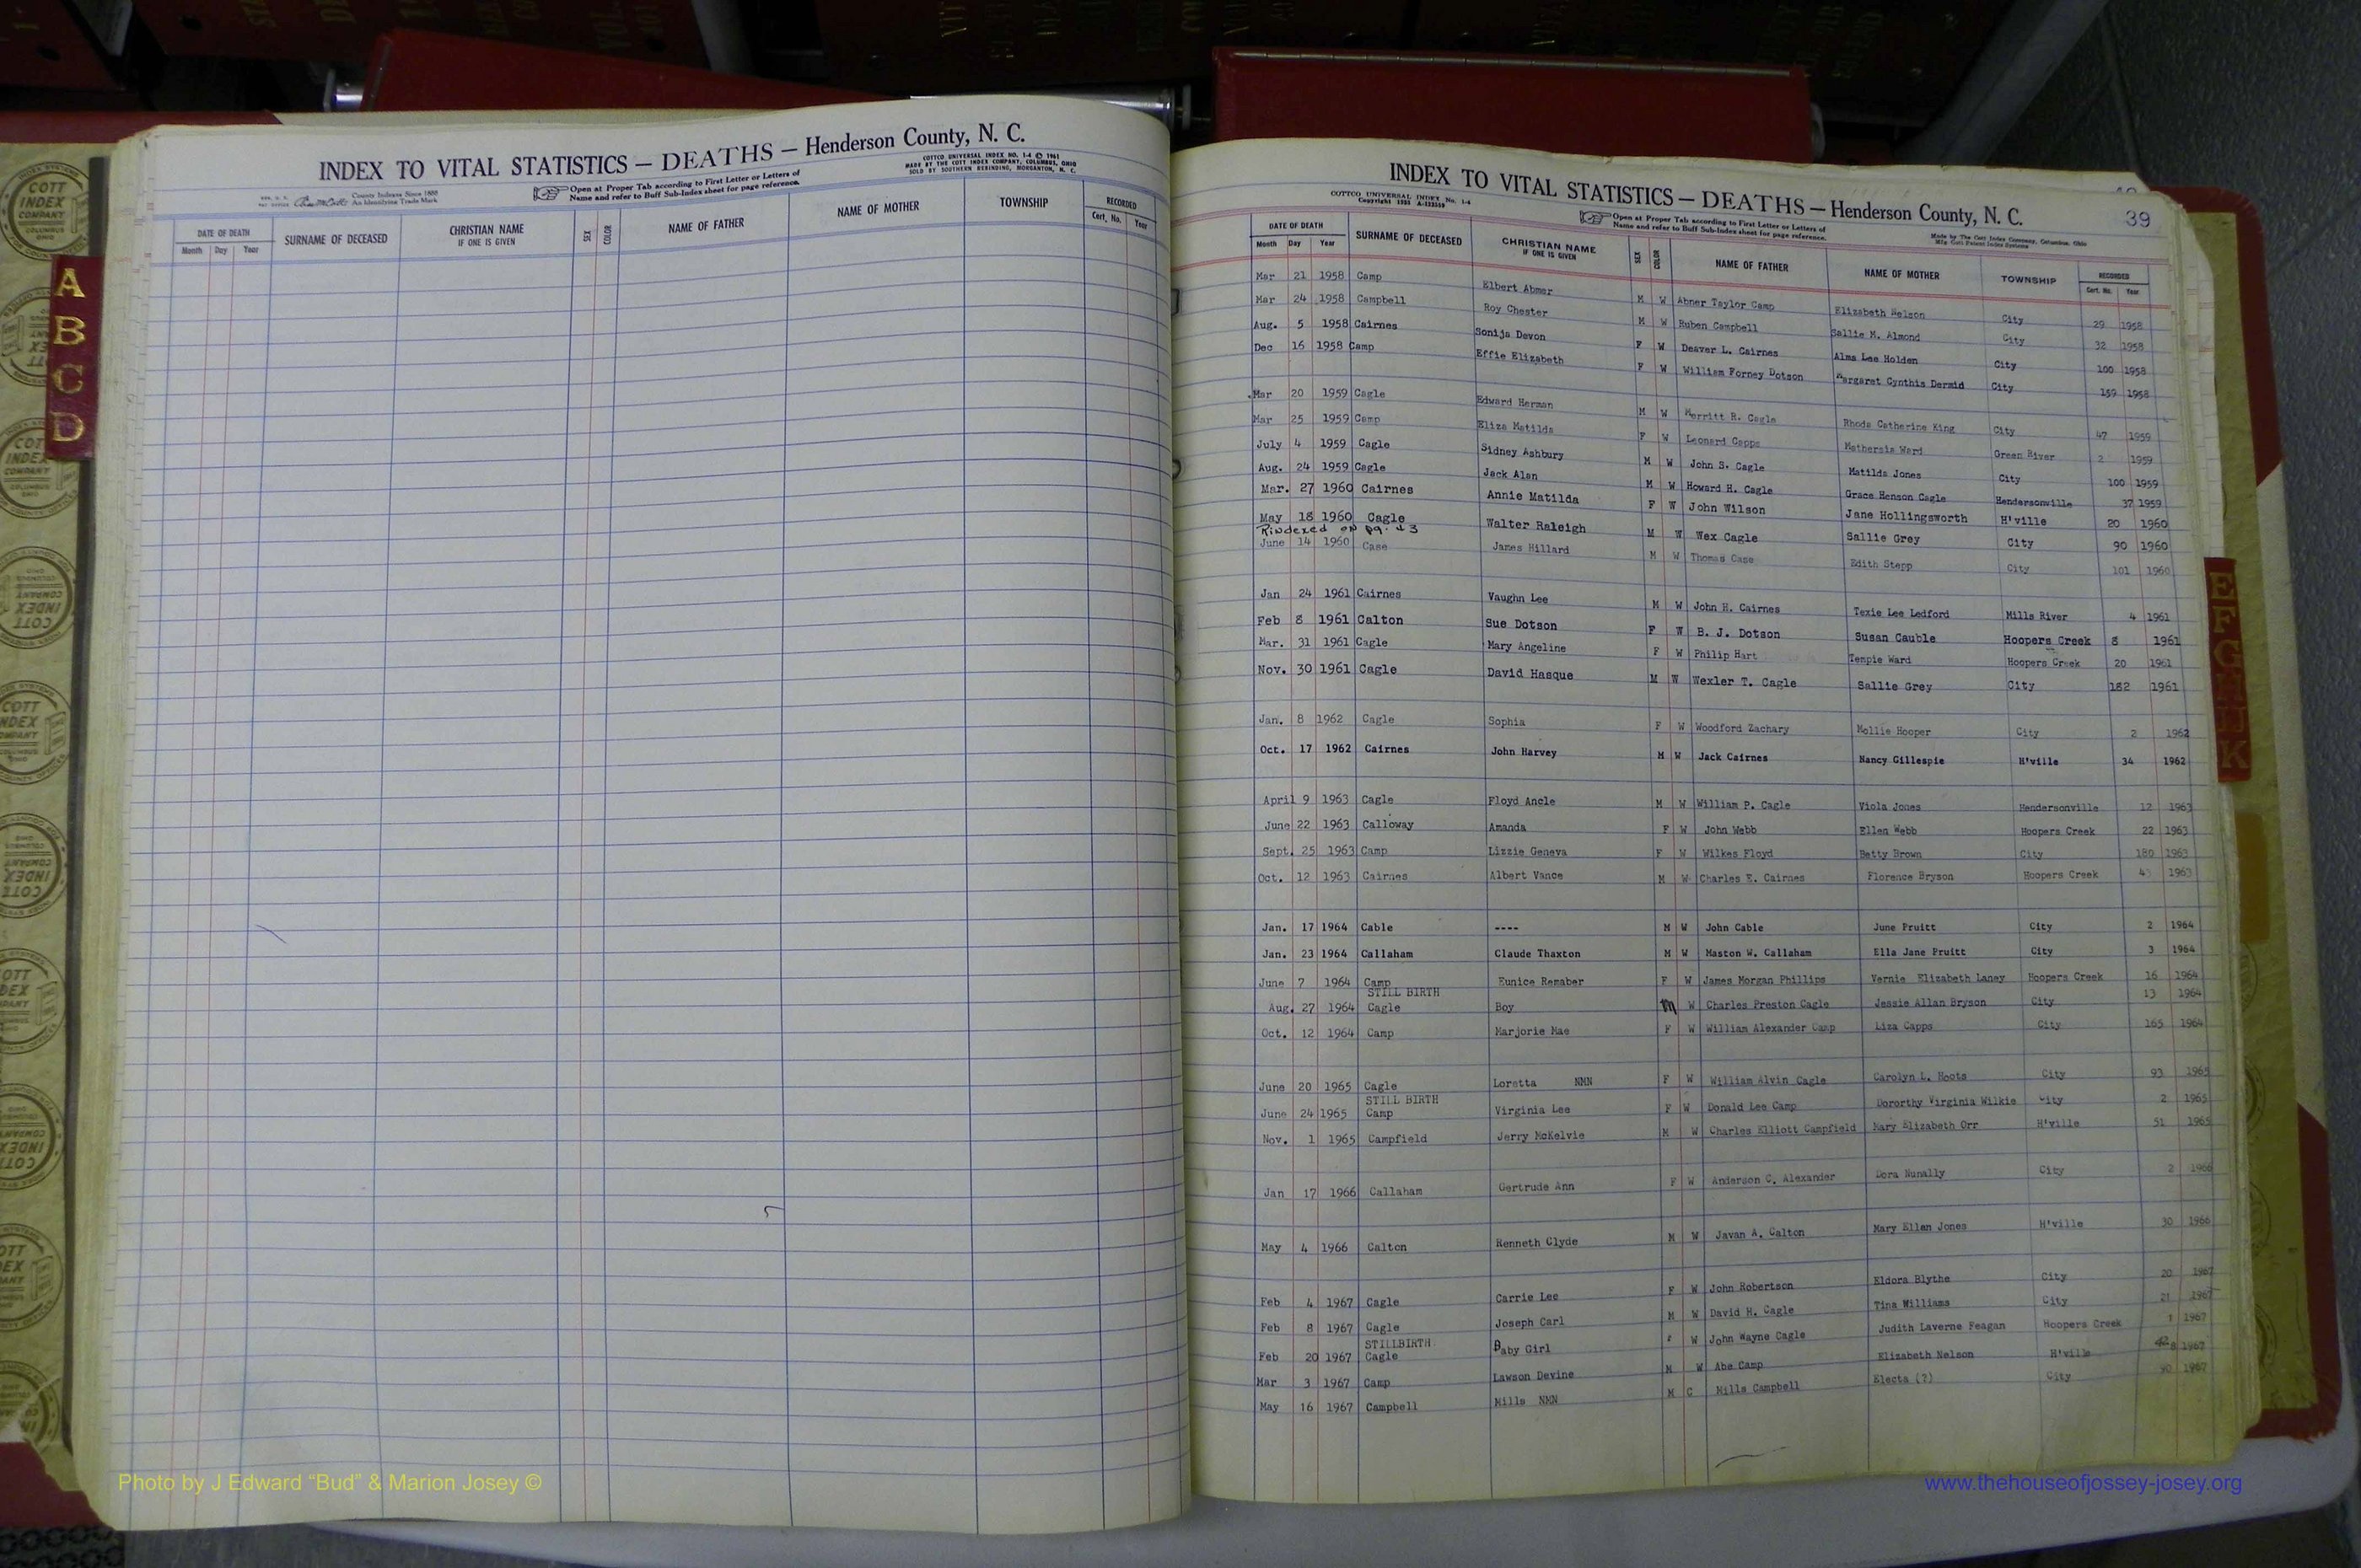 INDEX TO VITAL STATISTICS — DEATHS — Henderson County, N. C.
COTTCO UNIVERSAL INDEX NO. 1-4 © 1961
MADE BY THE COTT INDEX COMPANY, COLUMBUS, OHIO
SOLD BY SOUTHERN REBINDING, MORGANTON, N. C.
County Indexes Since 1888
An Identifying Trade Mark
Open at Proper Tab according to First Letter or Letters of
Name and refer to Buff Sub-Index sheet for page reference.
DATE OF DEATH SURNAME OF DECEASED CHRISTIAN NAME IF ONE IS GIVEN SEX COLOR NAME OF FATHER NAME OF MOTHER TOWNSHIP RECORDED
Month Day Year Cert. No. Year
A
B
C
D
INDEX TO VITAL STATISTICS — DEATHS — Henderson County, N. C.
39
COTTCO UNIVERSAL INDEX No. 1-4
Open at Proper Tab according to First Letter or Letters of
Name and refer to Buff Sub-Index sheet for page reference.
Made by The Cott Index Company, Columbus, Ohio
DATE OF DEATH SURNAME OF DECEASED CHRISTIAN NAME IF ONE IS GIVEN SEX COLOR NAME OF FATHER NAME OF MOTHER TOWNSHIP RECORDED
Month Day Year Cert. No. Year
Mar 21 1958 Camp Elbert Abner M W Abner Taylor Camp Elizabeth Nelson City 29 1958
Mar 24 1958 Campbell Roy Chester M W Ruben Campbell Sallie M. Almond City 32 1958
Aug. 5 1958 Cairnes Sonija Devon F W Deaver L. Cairnes Alma Lee Holden City 100 1958
Dec 16 1958 Camp Effie Elizabeth F W William Forney Dotson Margaret Cynthis Dermid City 159 1958
Mar 20 1959 Cagle Edward Herman M W Merritt R. Cagle Rhoda Catherine King City 47 1959
Mar 25 1959 Camp Eliza Matilda F W Leonard Capps Mathersia Ward Green River 2 1959
July 4 1959 Cagle Sidney Ashbury M W John S. Cagle Matilda Jones City 100 1959
Aug. 24 1959 Cagle Jack Alan M W Howard H. Cagle Grace Henson Cagle Hendersonville 37 1959
Mar. 27 1960 Cairnes Annie Matilda F W John Wilson Jane Hollingsworth H'ville 20 1960
May 18 1960 Cagle Walter Raleigh M W Wex Cagle Sallie Grey City 90 1960
Rindexed on pg. 43
June 14 1960 Case James Hillard M W Thomas Case Edith Stepp City 101 1960
Jan 24 1961 Cairnes Vaughn Lee M W John H. Cairnes Texie Lee Ledford Mills River 4 1961
Feb 8 1961 Calton Sue Dotson F W B. J. Dotson Susan Cauble Hoopers Creek 8 1961
Mar. 31 1961 Cagle Mary Angeline F W Philip Hart Tempie Ward Hoopers Creek 20 1961
Nov. 30 1961 Cagle David Hasque M W Wexler T. Cagle Sallie Grey City 182 1961
Jan. 8 1962 Cagle Sophia F W Woodford Zachary Mollie Hooper City 2 1962
Oct. 17 1962 Cairnes John Harvey M W Jack Cairnes Nancy Gillespie H'ville 34 1962
April 9 1963 Cagle Floyd Ancle M W William P. Cagle Viola Jones Hendersonville 12 1963
June 22 1963 Calloway Amanda F W John Webb Ellen Webb Hoopers Creek 22 1963
Sept. 25 1963 Camp Lizzie Geneva F W Wilkes Floyd Betty Brown City 180 1963
Oct. 12 1963 Cairnes Albert Vance M W Charles E. Cairnes Florence Bryson Hoopers Creek 1963
Jan. 17 1964 Cable ---- M W John Cable June Pruitt City 2 1964
Jan. 23 1964 Callaham Claude Thaxton M W Maston W. Callaham Ella Jane Pruitt City 3 1964
June 7 1964 Camp Eunice Remaber F W James Morgan Phillips Vernie Elizabeth Laney Hoopers Creek 16 1964
STILL BIRTH
Aug. 27 1964 Cagle Boy M W Charles Preston Cagle Jessie Allan Bryson City 13 1964
Oct. 12 1964 Camp Marjorie Mae F W William Alexander Camp Liza Capps City 165 1964
June 20 1965 Cagle Loretta NMN F W William Alvin Cagle Carolyn L. Hoots City 93 1965
STILL BIRTH
June 24 1965 Camp Virginia Lee F W Donald Lee Camp Dororthy Virginia Wilkie City 2 1965
Nov. 1 1965 Campfield Jerry McKelvie M W Charles Elliott Campfield Mary Elizabeth Orr H'ville 51 1965
Jan 17 1966 Callaham Gertrude Ann F W Anderson C. Alexander Dora Nunally City 2 1966
May 4 1966 Calton Renneth Clyde M W Javan A. Calton Mary Ellen Jones H'ville 30 1966
Feb 4 1967 Cagle Carrie Lee F W John Robertson Eldora Blythe City 20 1967
Feb 8 1967 Cagle Joseph Carl M W David H. Cagle Tina Williams City 21 1967
STILLBIRTH
Feb 20 1967 Cagle Baby Girl F W John Wayne Cagle Judith Laverne Feagan Hoopers Creek 1 1967
Mar 3 1967 Camp Lawson Devine M W Abe Camp Elizabeth Nelson H'ville 8 1967
May 16 1967 Campbell Mills NMN M C Mills Campbell Electa (?) City 90 1967
E
F
G
H
K
Photo by J Edward “Bud” & Marion Josey ©
www.thehouseofjossey-josey.org